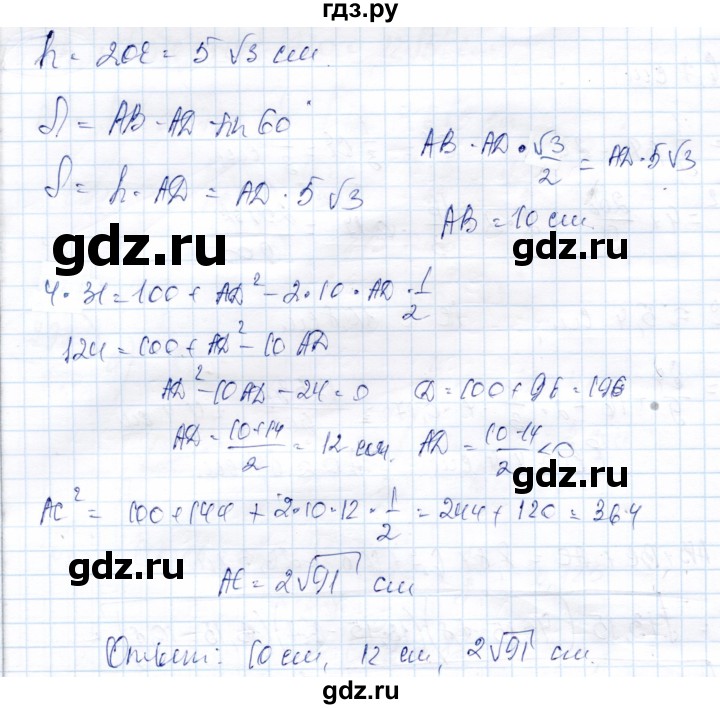 гдз.ру
h = 2OE = 5√3 см.
S = AB · AD · sin 60°
S = h · AD = AD · 5√3
AB · AD · √3/2 = AD · 5√3
AB = 10 см.
gdz.ru
gdz.ru
4 · 31 = 100 + AD² - 2 · 10 · AD · 1/2
124 = 100 + AD² - 10 AD
AD² - 10AD - 24 = 0 D = 100 + 96 = 196
AD = (10+14)/2 = 12 см. AD = (10-14)/2 < 0
AC² = 100 + 144 + 2 · 10 · 12 · 1/2 = 244 + 120 = 364
gdz.ru
gdz.ru
AC = 2√91 см
Ответ: 10 см, 12 см, 2√91 см.
gdz.ru